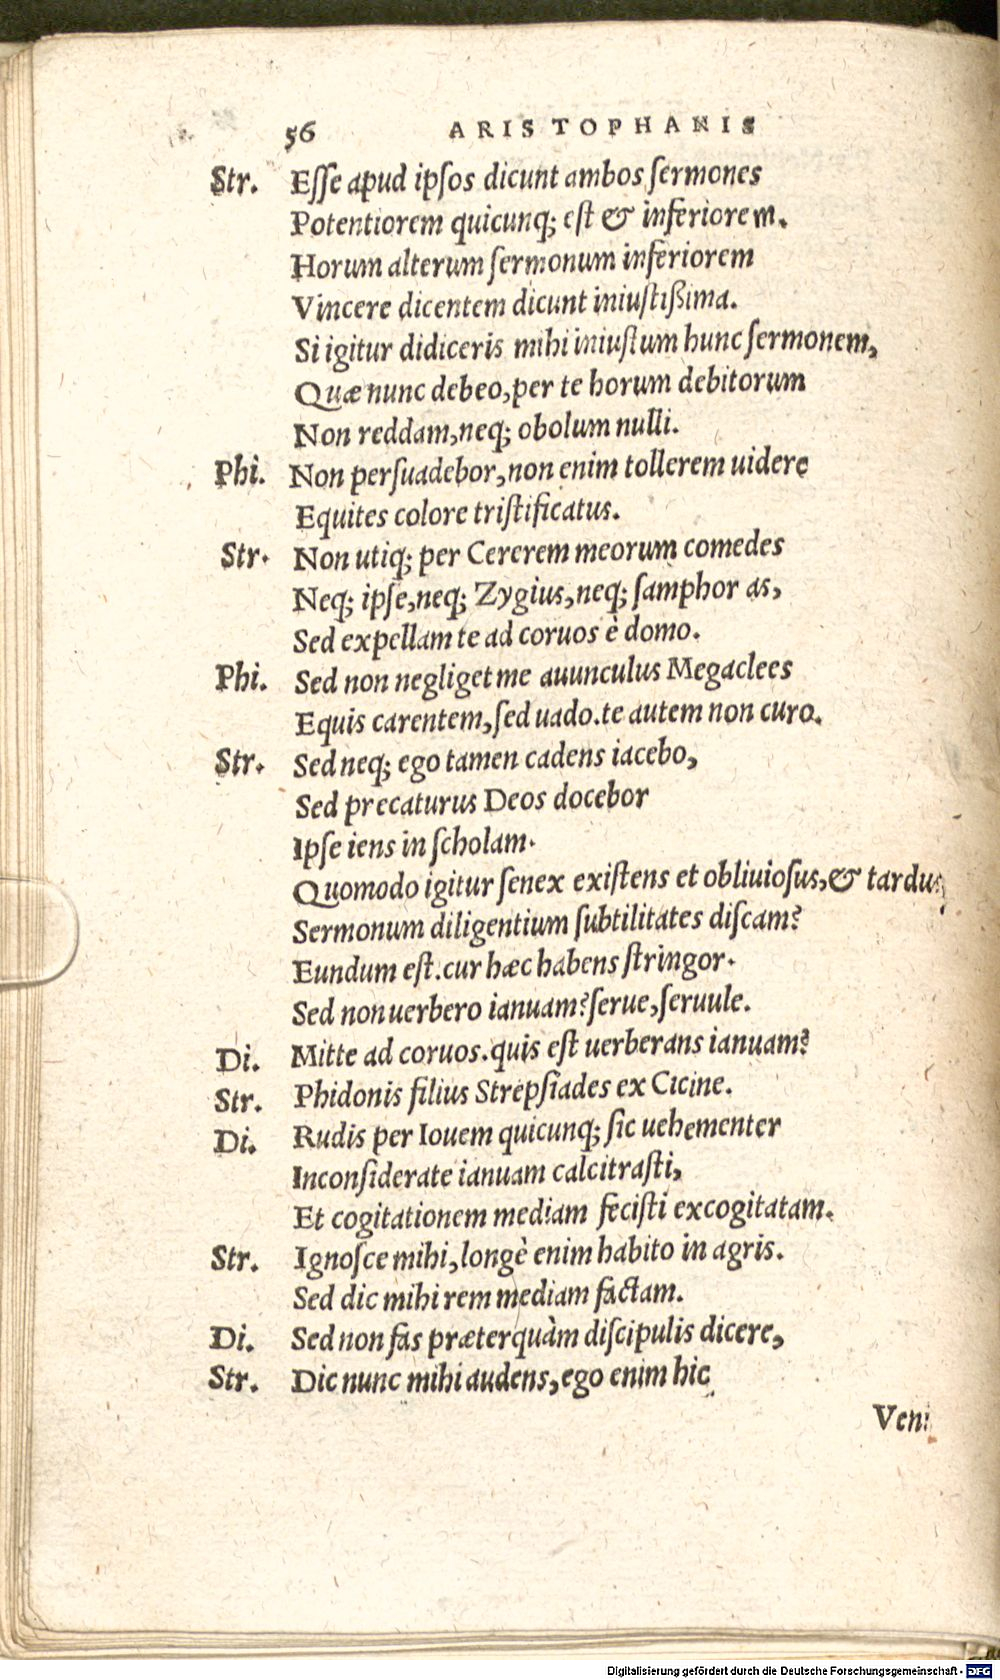 56 ARISTOPHANIS
Str. Eſſe apud ipſos dicunt ambos ſermones
Potentiorem quicunq; eſt & inferiorem.
Horum alterum ſermonum inferiorem
Vincere dicentem dicunt iniuſtißima.
Si igitur didiceris mihi iniuſtum hunc ſermonem,
Quæ nunc debeo, per te horum debitorum
Non reddam, neq; obolum nulli.
Phi. Non perſuadebor, non enim tollerem uidere
Equites colore triſtificatus.
Str. Non utiq; per Cererem meorum comedes
Neq; ipſe, neq; Zygius, neq; ſamphor as,
Sed expellam te ad coruos è domo.
Phi. Sed non negliget me auunculus Megaclees
Equis carentem, ſed uado. te autem non curo.
Str. Sed neq; ego tamen cadens iacebo,
Sed precaturus Deos docebor
Ipſe iens in ſcholam.
Quomodo igitur ſenex exiſtens et obliuioſus, & tardus,
Sermonum diligentium ſubtilitates diſcam?
Eundum eſt. cur hæc habens ſtringor.
Sed non uerbero ianuam? ſerue, ſeruule.
Di. Mitte ad coruos. quis eſt uerberans ianuam?
Str. Phidonis filius Strepſiades ex Cicine.
Di. Rudis per Iouem quicunq; ſic uehementer
Inconſiderate ianuam calcitraſti,
Et cogitationem mediam feciſti excogitatam.
Str. Ignoſce mihi, longè enim habito in agris.
Sed dic mihi rem mediam factam.
Di. Sed non fas præterquàm diſcipulis dicere,
Str. Dic nunc mihi audens, ego enim hic
Veni
Digitalisierung gefördert durch die Deutsche Forschungsgemeinschaft - DFG